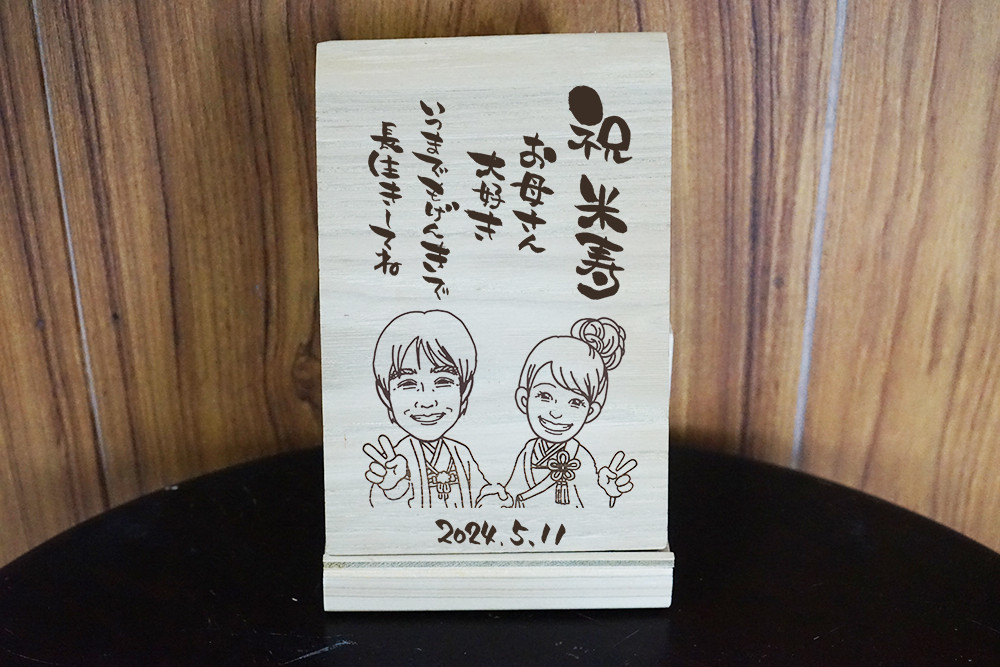 祝 米寿
お母さん
大好き
いつまでもげんきで
長生きしてね
2024.5.11